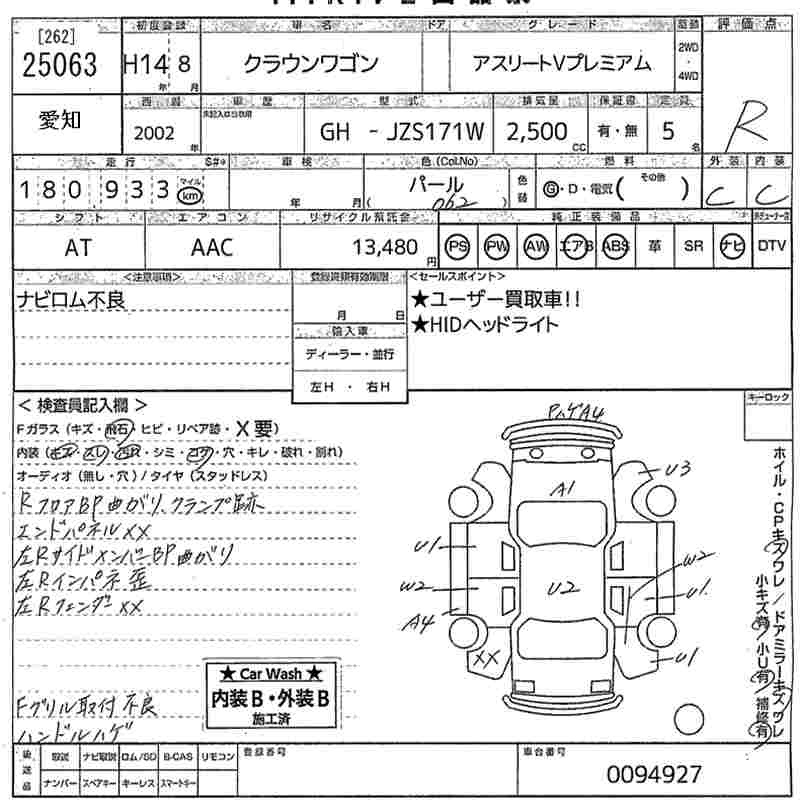 [262]
25063
初度登録 車名 ドア グレード 駆動 評価点
H14年 8月 クラウンワゴン アスリートVプレミアム 2WD・4WD R
愛知
西暦 車歴 型式 排気量 保証書 定員
未記入は自家用
2002年 GH - JZS171W 2,500CC 有・無 5名
走行 S#* 車検 色(Col.No) 燃料 外装 内装
180,933 マイル km 年 月 パール ( 062 ) 色替 G・D・電気( その他 ) C C
シフト エアコン リサイクル預託金 純正装備品
AT AAC 13,480円 PS PW AW エアB ABS 革 SR ナビ DTV
<注意事項> 登録書類有効期限 <セールスポイント>
ナビロム不良 月 日 ★ユーザー買取車!!
★HIDヘッドライト
輸入車
ディーラー・並行
左H・右H
キーロック
< 検査員記入欄 >
Fガラス(キズ・飛石・ヒビ・リペア跡・X要)
内装(キズ・スレ・汚れ・シミ・コゲ・穴・キレ・破れ・割れ)
オーディオ(無し・穴)/タイヤ(スタッドレス)
RフロアBP曲がり、クランプ跡
エンドパネルXX
左RサイドメンバーBP曲がり
左Rインパネ歪
左RフェンダーXX
Fグリル取付不良
ハンドルハゲ
★ Car Wash ★
内装B・外装B
施工済
PハゲA4
A1
U3
U1
W2
U2
W2
U1
A4
XX
U1
ホイル・CPキズワレ/ドアミラーキズワレ
小キズ有/小U有/補修有
後送品 取説 ナビ取説 ロム/SD B-CAS リモコン
ナンバー スペアキー キーレス スマートキー
登録番号
車台番号
0094927